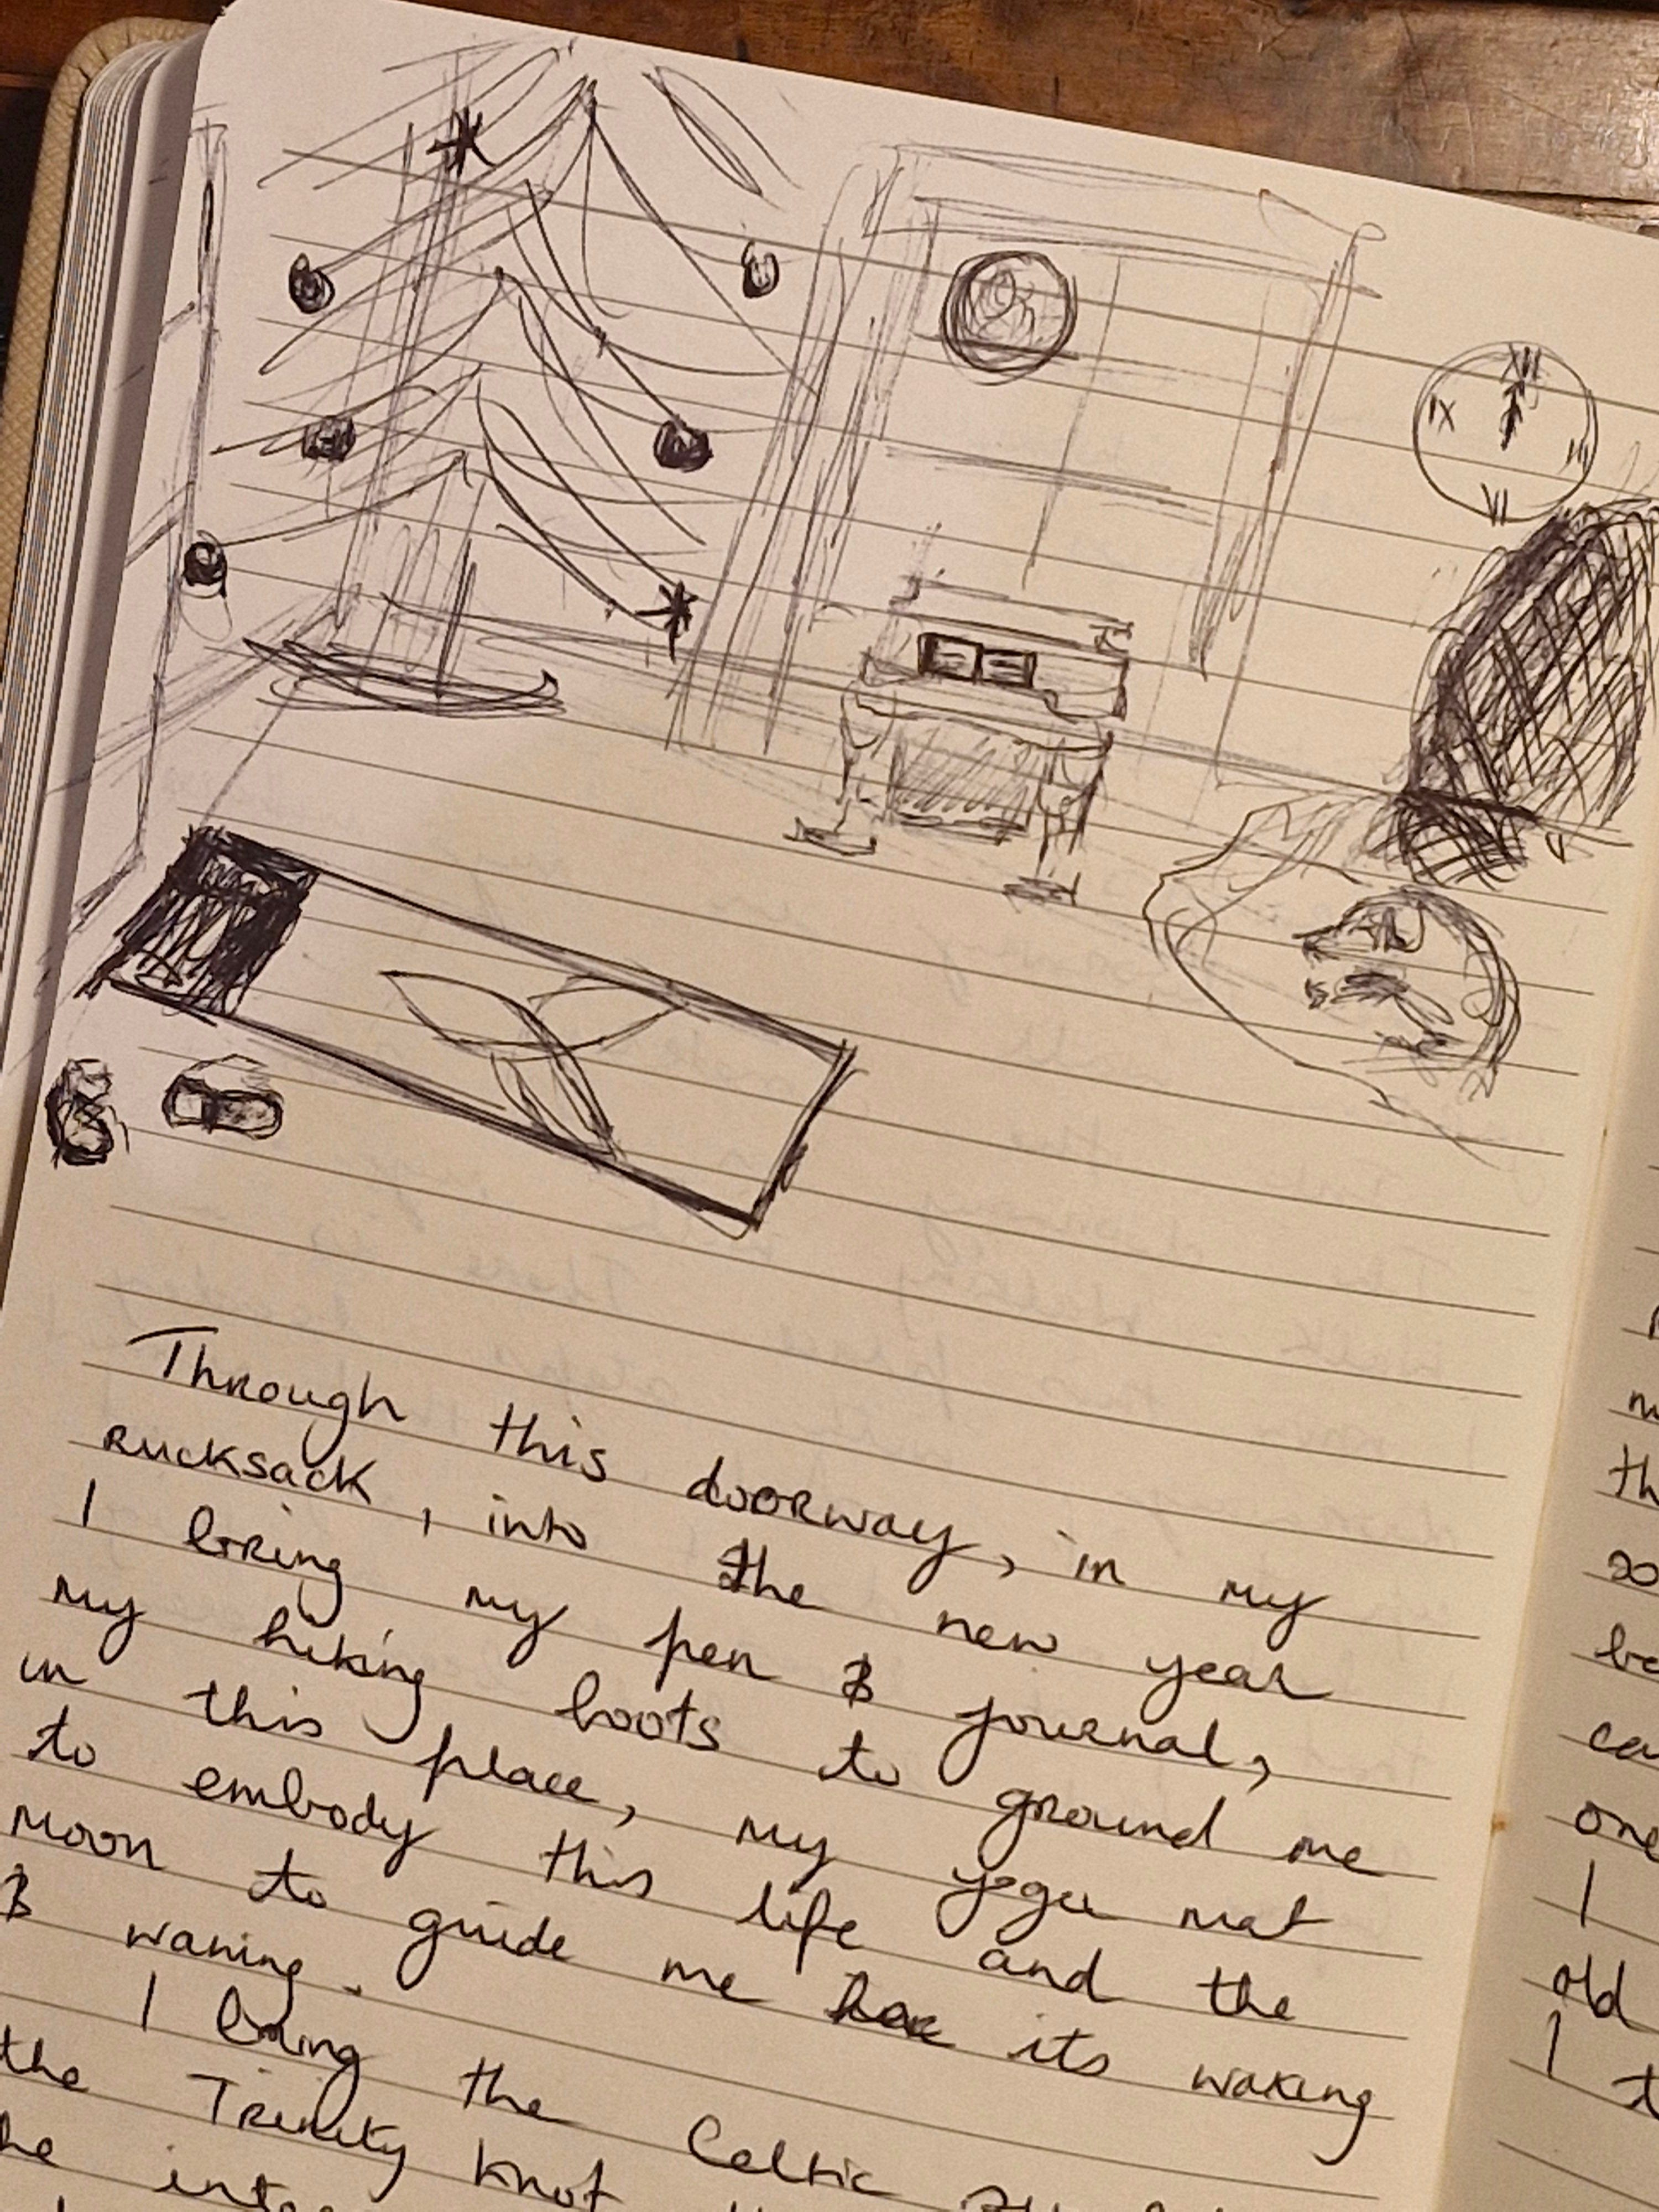 XII
IX
III
VI
Through this doorway, in my
rucksack, into the new year
I bring my pen & journal,
my hiking boots to ground me
in this place, my yoga mat
to embody this life and the
moon to guide me its waxing
& waning.
I bring the Celtic
the Trinity knot
m
th
so
be
ca
one
I
old
I t